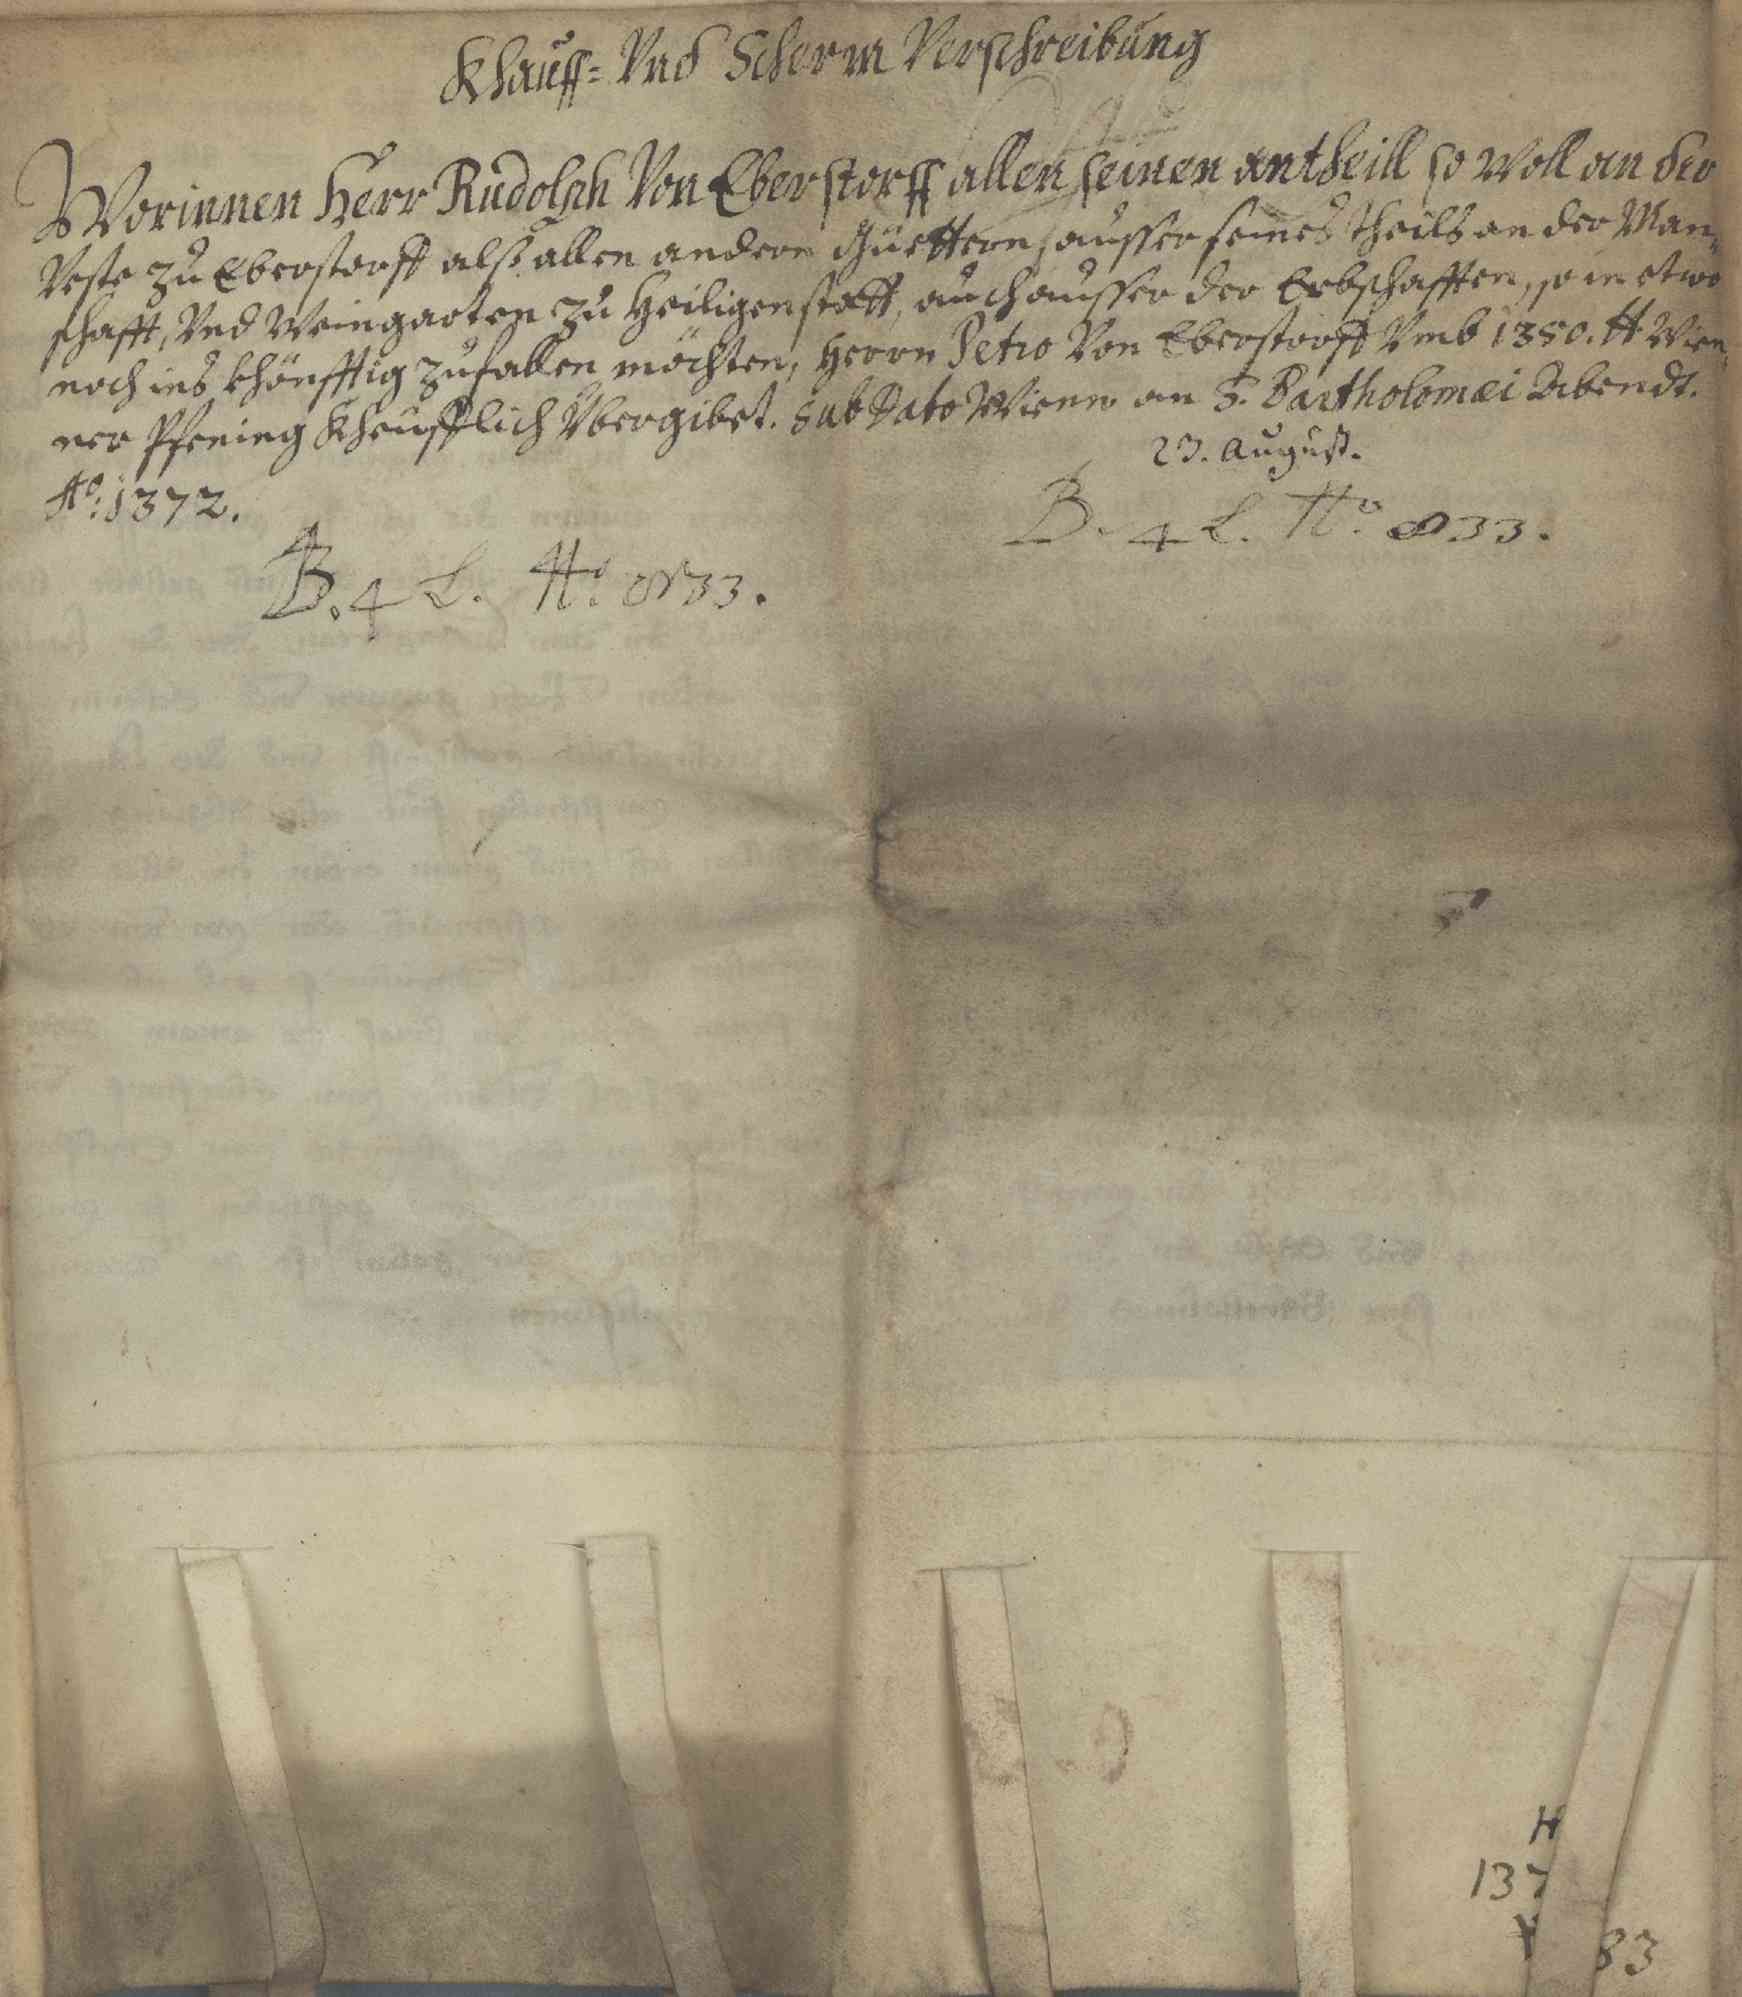 Khauff- Vnd Scherm Verschreibung
Worinnen Herr Rudolph Von Eberstorff allen seinen antheill so woll an der
Veste zu Eberstorff alß allen andern Güettern, ausser seines theils an der Man-
schafft, Vnd Weingarten zu Heiligenstatt, auch ausser der Erbschafften, so in etwo
noch ins khönfftig zufallen möchten, Herrn Petro Von Eberstorff Vmb 1350. tt Wien-
ner Pfening Kheufflich Übergibet. Sub Dato Wienn an S. Bartholomæi Abendt.
23. August.
Aº. 1372.
B. 4 L. Nº 833.
B. 4 L. Nº. 833.
H
137
83